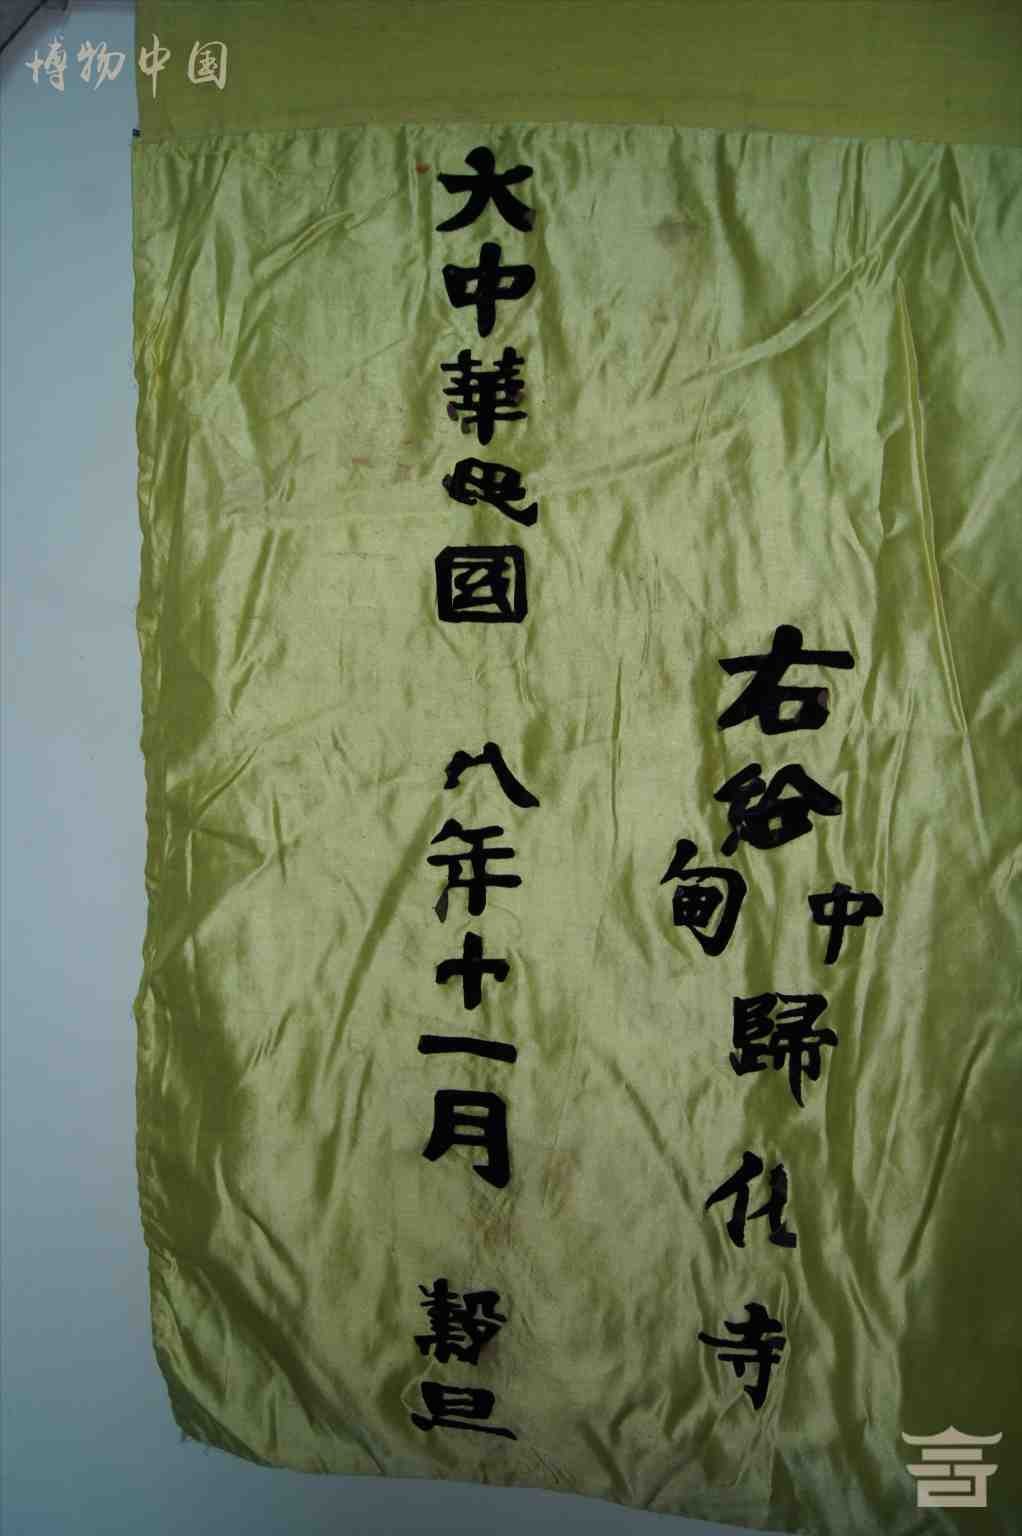 博物中国
右给中甸歸化寺
大中華民國 八年十一月 穀旦